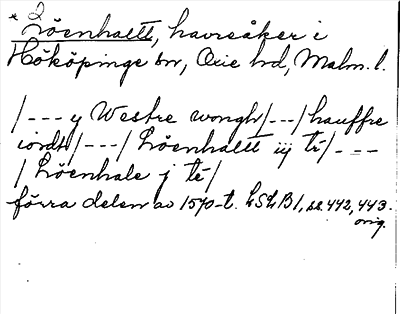 * 2
Löenhaltt, havreåker i
Hököpinge sn, Oxie hd, Malm. l.
/--- y Westre wongh/---/hauffre
iordh/---/ Löenhaltt iij tĕ/---
/Löenhale j tĕ/
förra delen av 1570-t. LSLB1, ss. 442, 443.
orig.